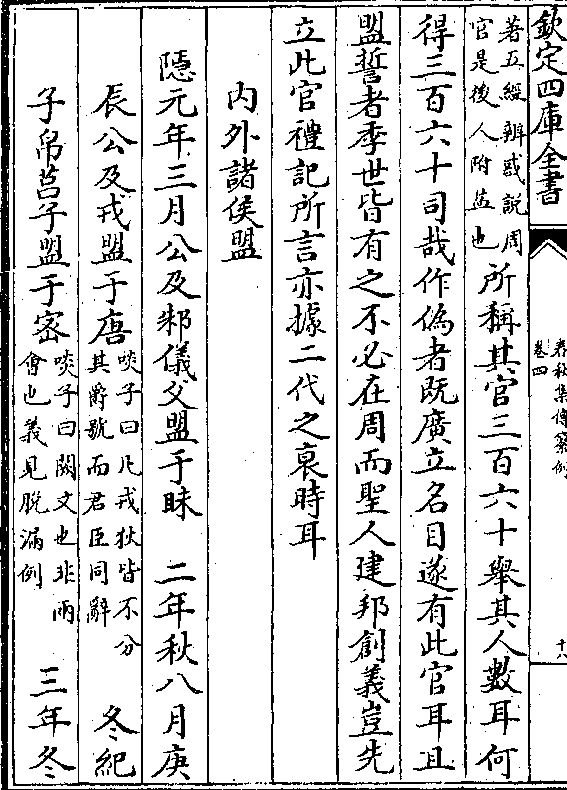 欽定四庫全書
春秋集傳纂例
卷四
十八
著五經辨惑說周
官是後人附益也
所稱其官三百六十舉其人數耳何
得三百六十司哉作偽者旣廣立名目遂有此官耳且
盟誓者季世皆有之不必在周而聖人建邦創義豈先
立此官禮記所言亦據二代之衰時耳
內外諸侯盟
隱元年三月公及邾儀父盟于眜　二年秋八月庚
辰公及戎盟于唐
啖子曰凡戎狄皆不分
其爵號而君臣同辭
冬紀
子帛莒子盟于密
啖子曰闕文也非兩
會也義見脫漏例
三年冬